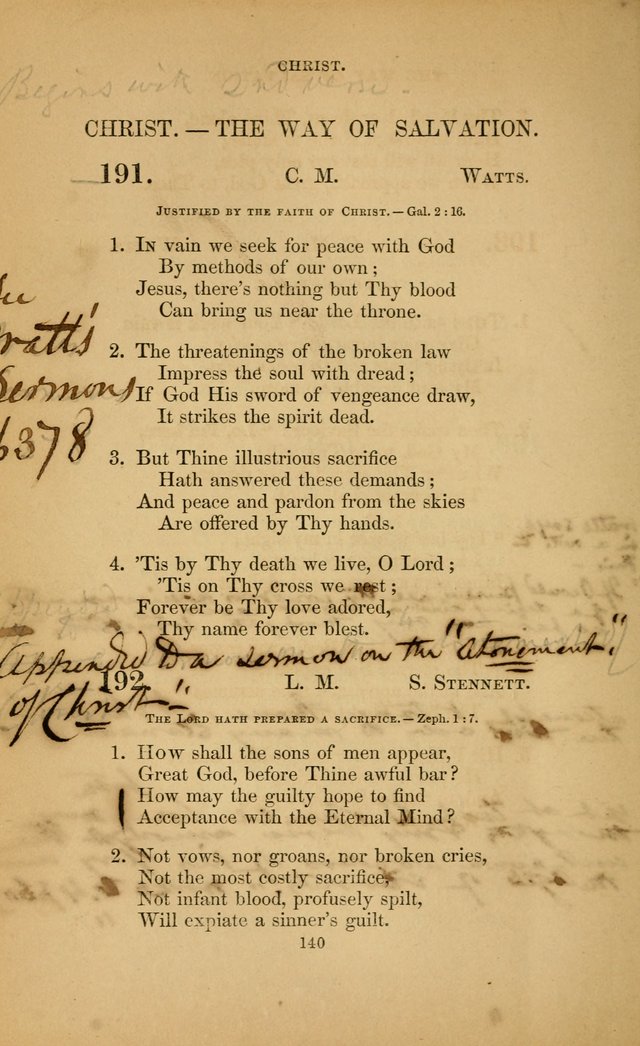 CHRIST.
Begins with 2nd verse.
CHRIST. — THE WAY OF SALVATION.
191. C. M. WATTS.
JUSTIFIED BY THE FAITH OF CHRIST. — Gal. 2 : 16.
1. IN vain we seek for peace with God
By methods of our own ;
Jesus, there's nothing but Thy blood
Can bring us near the throne.
Watts'
Sermons
378
2. The threatenings of the broken law
Impress the soul with dread ;
If God His sword of vengeance draw,
It strikes the spirit dead.
3. But Thine illustrious sacrifice
Hath answered these demands ;
And peace and pardon from the skies
Are offered by Thy hands.
4. 'Tis by Thy death we live, O Lord ;
'Tis on Thy cross we rest ;
Forever be Thy love adored,
Thy name forever blest.
Appended to a sermon on the "Atonement"
of Christ"
192. L. M. S. STENNETT.
THE LORD HATH PREPARED A SACRIFICE. — Zeph. 1 : 7.
1. HOW shall the sons of men appear,
Great God, before Thine awful bar ?
How may the guilty hope to find
Acceptance with the Eternal Mind ?
2. Not vows, nor groans, nor broken cries,
Not the most costly sacrifice,
Not infant blood, profusely spilt,
Will expiate a sinner's guilt.
140